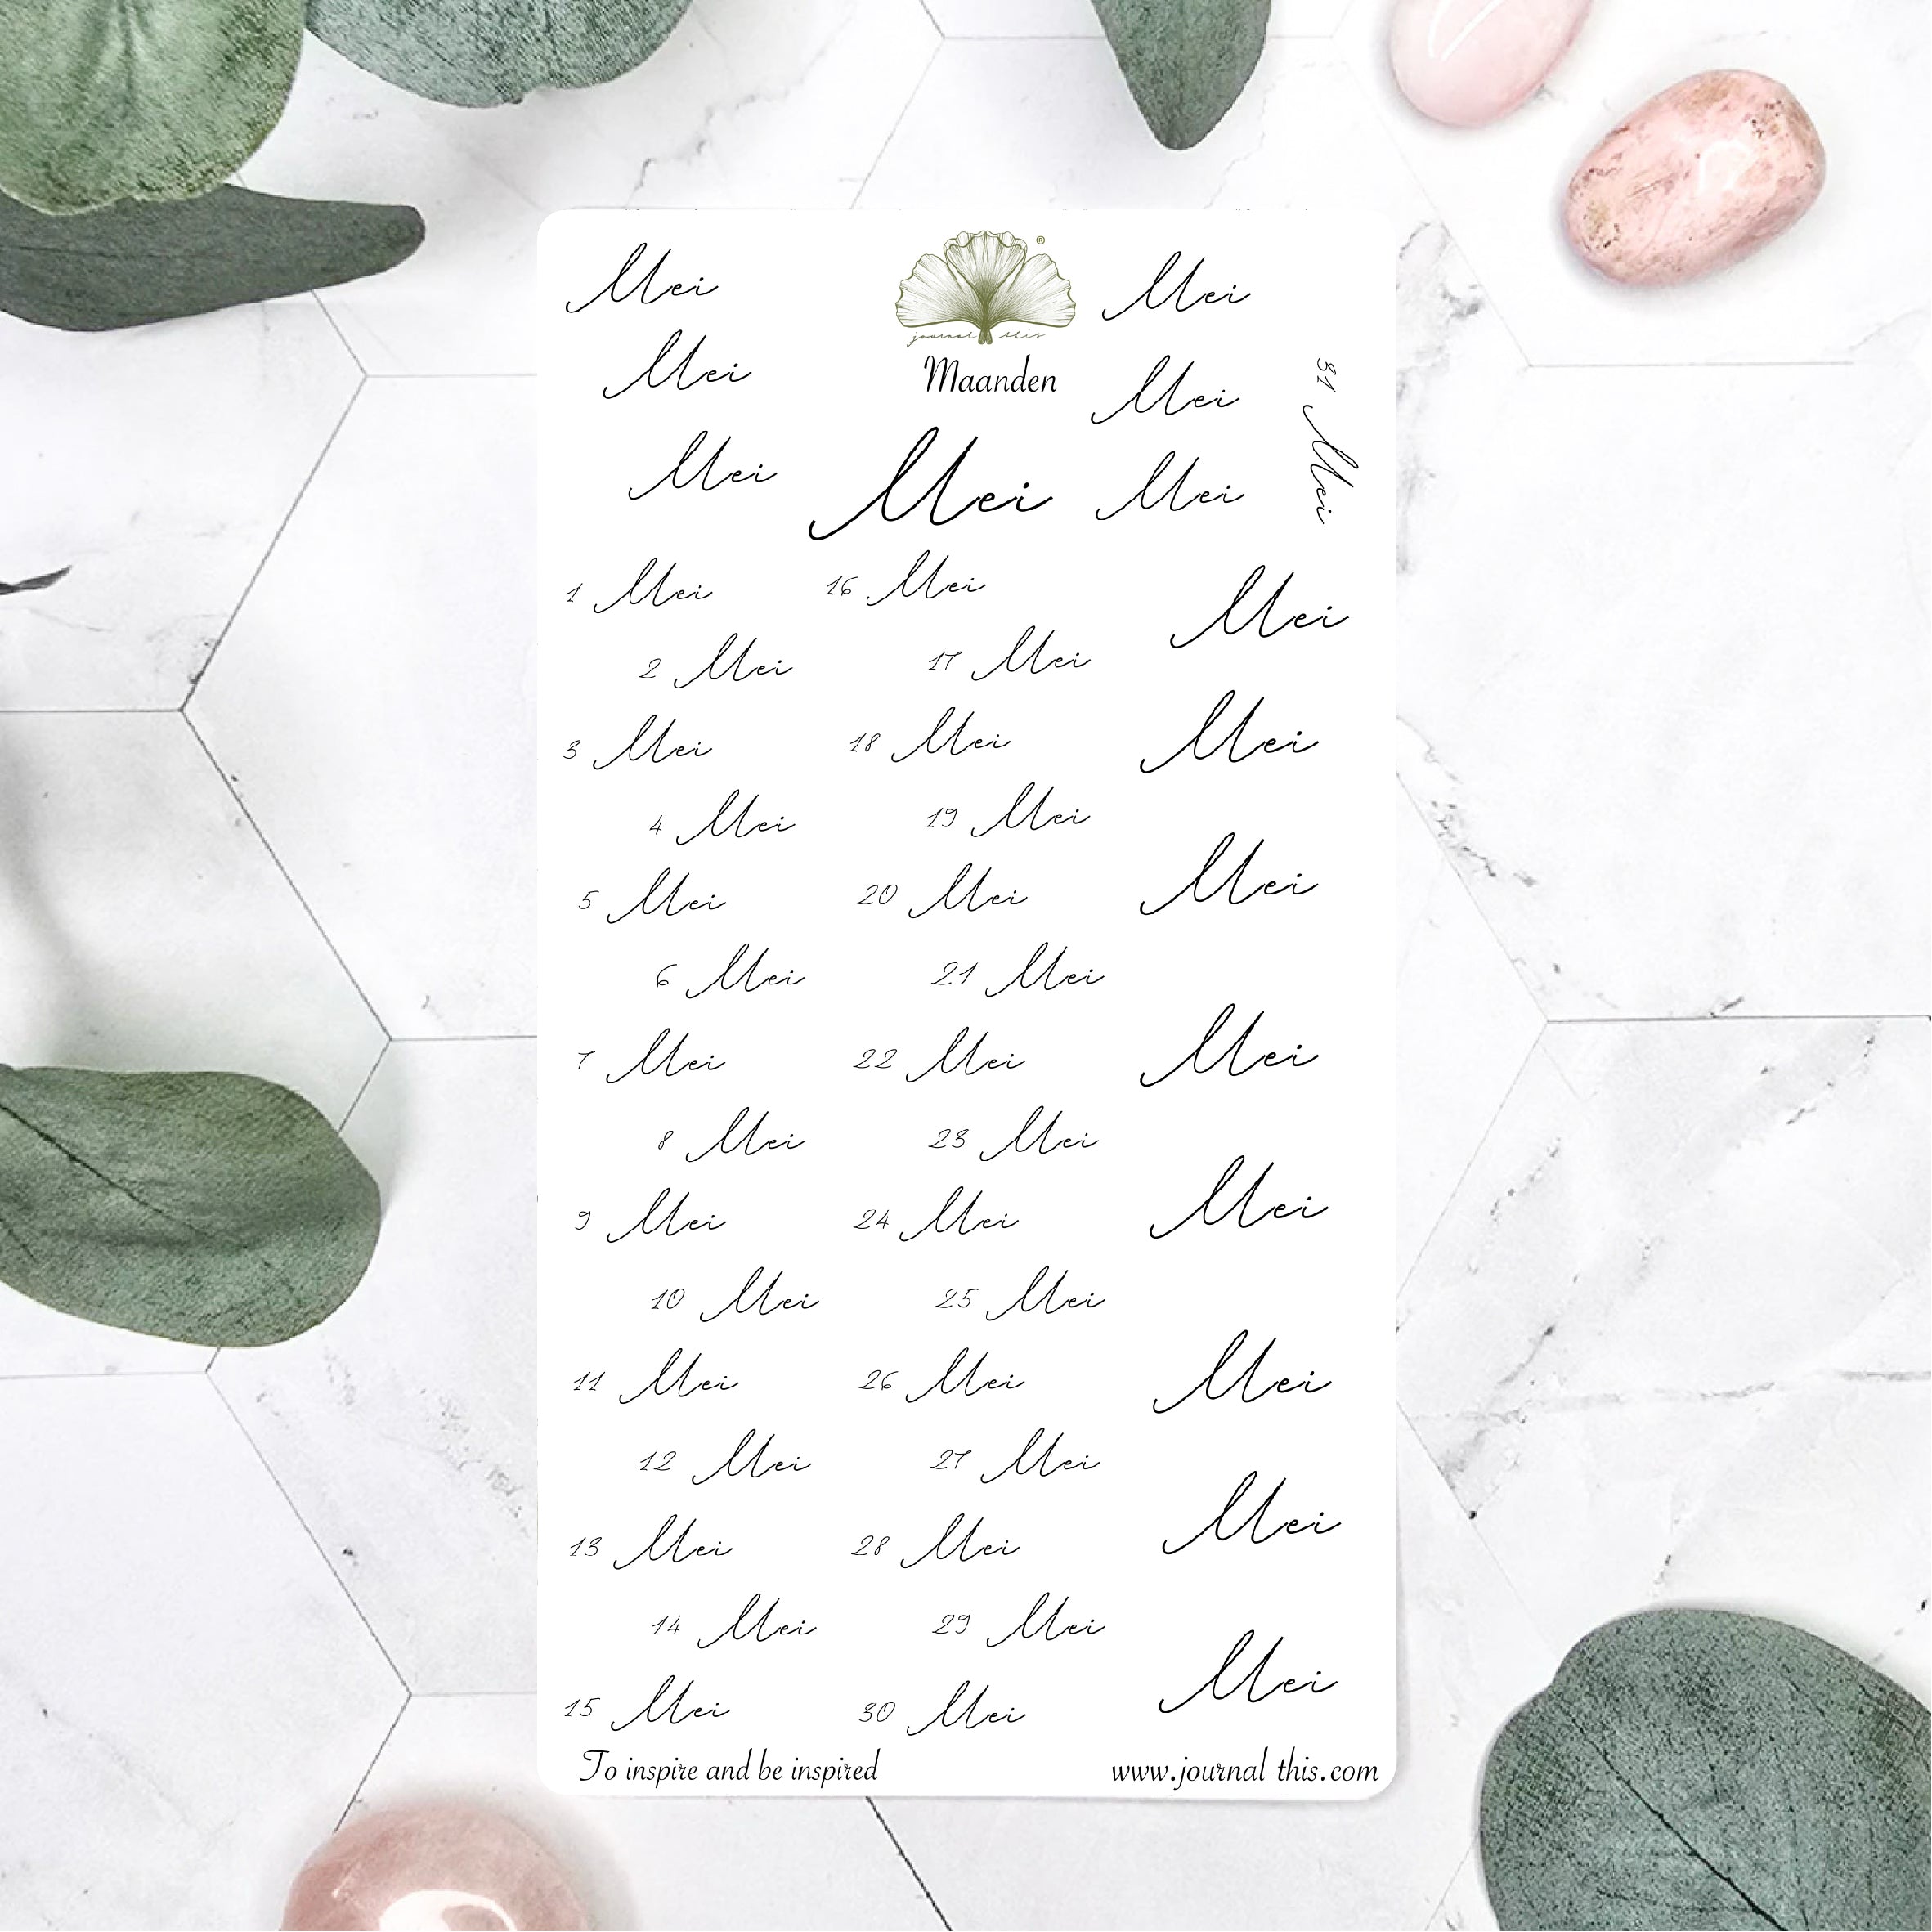 Mei
®
Mei
journal this
Mei
Maanden
Mei
31 Mei
Mei
Mei
Mei
1 Mei
16 Mei
Mei
2 Mei
17 Mei
3 Mei
18 Mei
Mei
4 Mei
19 Mei
5 Mei
20 Mei
Mei
6 Mei
21 Mei
7 Mei
22 Mei
Mei
8 Mei
23 Mei
9 Mei
24 Mei
Mei
10 Mei
25 Mei
11 Mei
26 Mei
Mei
12 Mei
27 Mei
13 Mei
28 Mei
Mei
14 Mei
29 Mei
15 Mei
30 Mei
Mei
To inspire and be inspired
www.journal-this.com